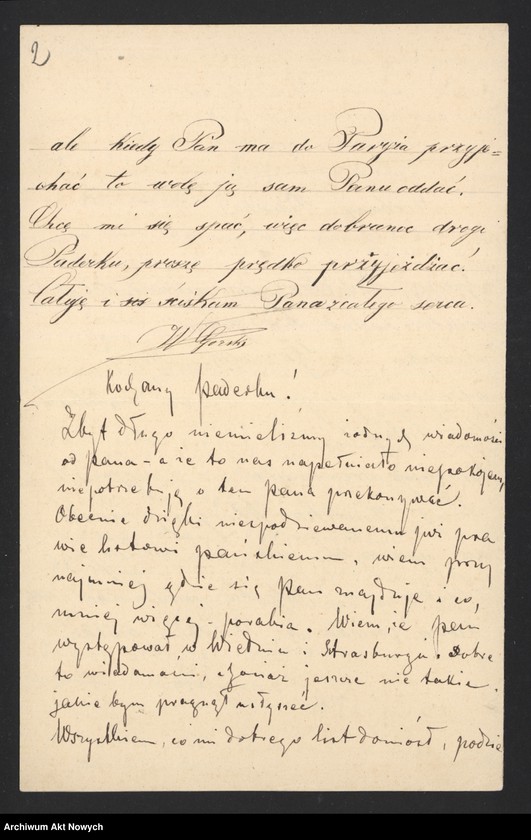 2
ale kiedy Pan ma do Paryża przyje=
chać to wolę ją sam Panu oddać.
Chcę mi się spać, więc dobranoc drogi
Paderku, proszę prędko przyjeżdżać.
Całuję i ściskam Pana z całego serca.
W Gorski
Kochany paderku!
Zbyt długo niemieliśmy żadnych wiadomości
od pana - a że to nas napełniało niepokojem,
niepotrzebuję o tem pana przekonywać.
Obecnie dzięki niespodziewanemu już pra
wie listowi pańskiemu, wiem przy
najmniej gdzie się pan znajduje i co,
mniej więcej - porabia. Wiem, że pan
występował w Wiedniu i Strasburgu. Dobre
to wiadomości, chociaż jeszcze nie takie
jakie bym pragnął usłyszeć.
Wszystkiem, co mi dobrego list doniósł, podzie
Archiwum Akt Nowych